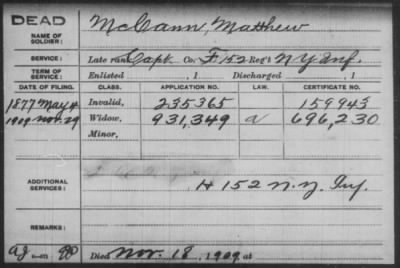 DEAD
NAME OF SOLDIER:
McCann, Matthew
SERVICE: Late rank Capt. Co. F 152 Reg't N Y Inf.
TERM OF SERVICE: Enlisted , 1 Discharged , 1
DATE OF FILING. CLASS. APPLICATION NO. LAW. CERTIFICATE NO.
1877 May 4 Invalid, 235365 159943
1909 Nov. 29 Widow, 931,349 a 696,230
Minor,
ADDITIONAL SERVICES: H 152 N.Y. Inf.
REMARKS:
Died Nov. 18, 1909, at